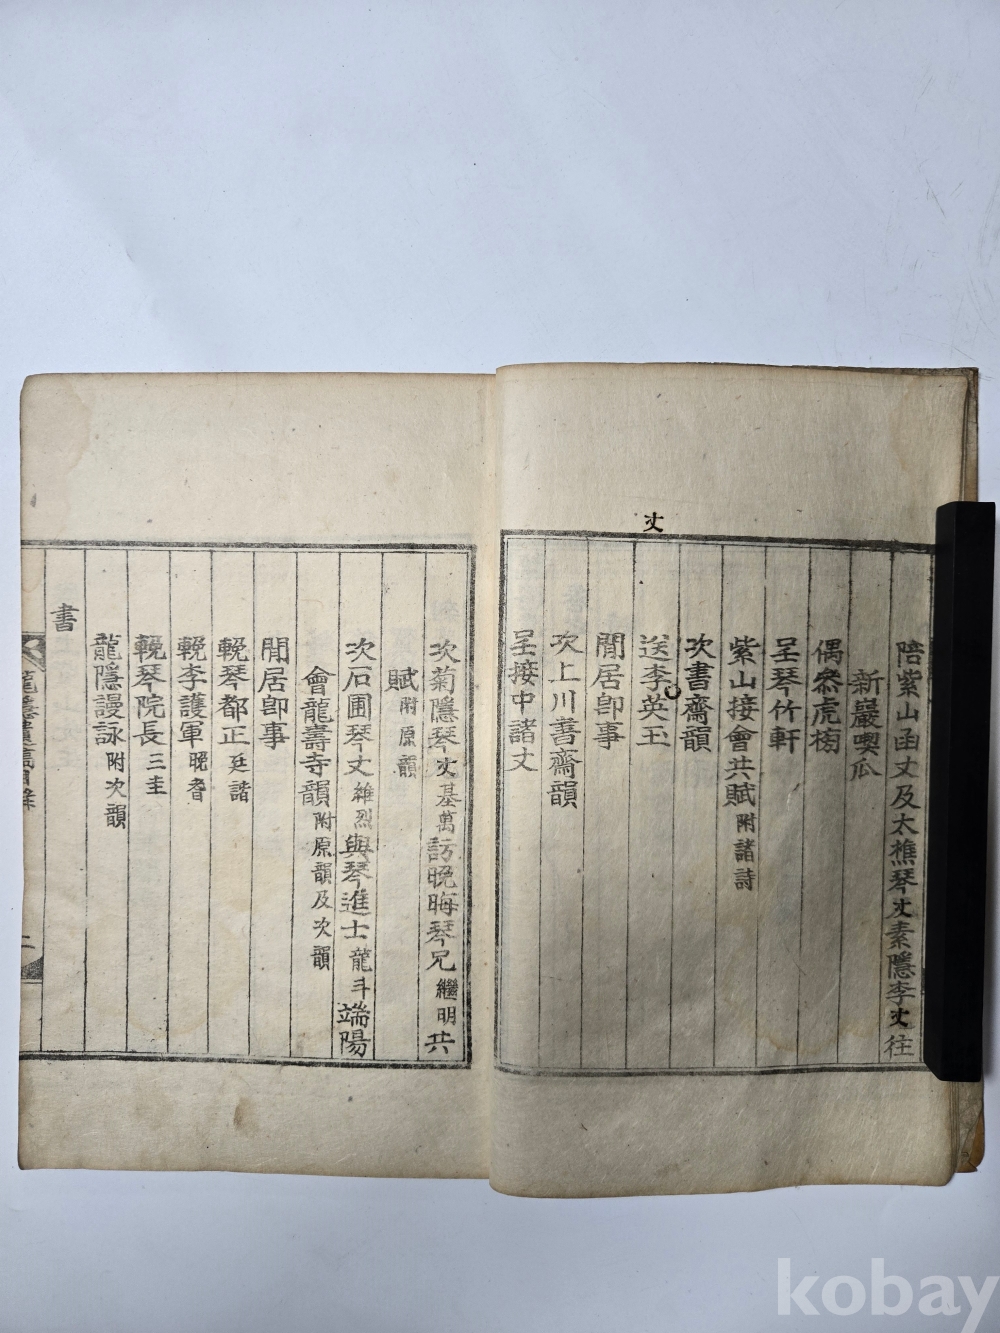 陪紫山函丈及太樵琴丈素隱李丈往
新巖喫瓜
偶叅虎榜
呈琴竹軒
紫山接會共賦附諸詩
次書齋韻
丈
送李英玉
閒居卽事
次上川書齋韻
呈接中諸丈
次菊隱琴丈基萬訪晩晦琴兄繼明共
賦附原韻
次石圃琴丈維烈與琴進士龍斗端陽
會龍壽寺韻附原韻及次韻
閒居卽事
輓琴都正廷諧
輓李護軍晩耆
輓琴院長三圭
龍隱謾詠附次韻
書
龍隱遺藁目錄
二
kobay